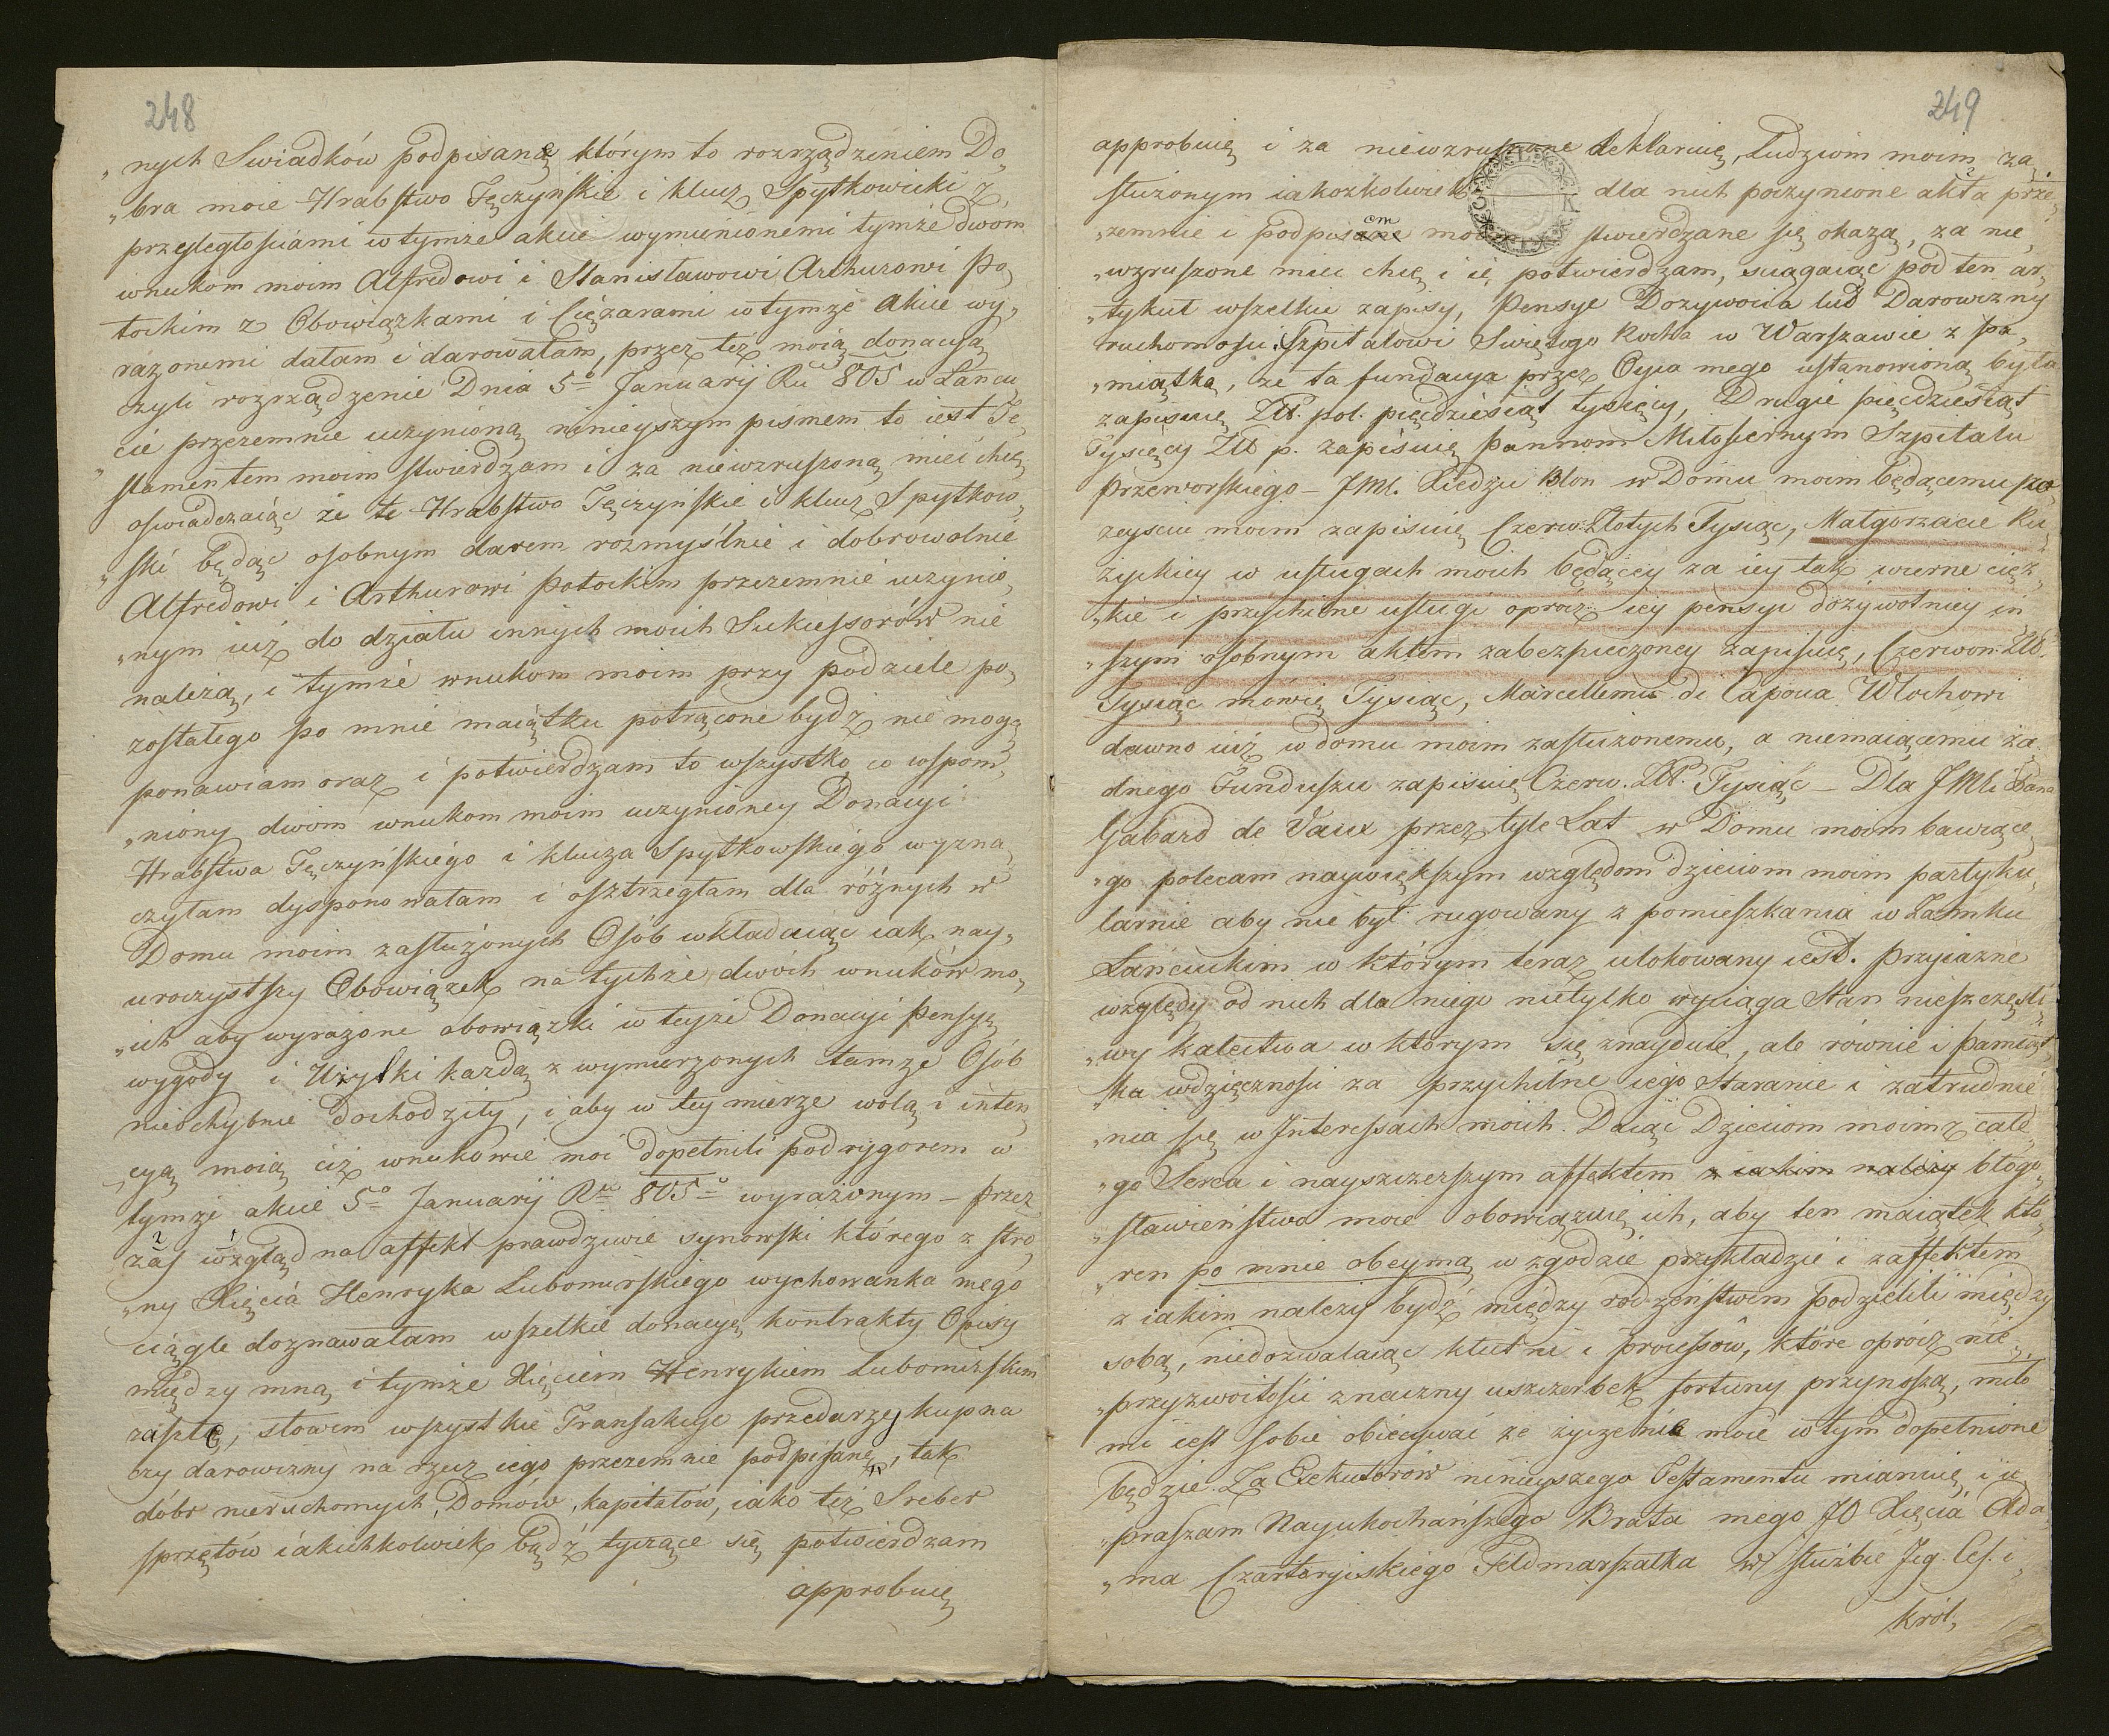 248
„nych Swiadków podpisane którym to rozrządzeniem Do„
„bra moie Hrabstwo Tęczyńskie i klucz Spytkowicki z
przyległościami w tymże akcie wymienionemi tymże dwom
wnukom moim Alfredowi i Stanisławowi Arthurowi Po„
tockim z Obowiązkami i Ciężarami w tymże Akcie wy„
rażonemi dałam i darowałam, przez też moią donacyą
czyli rozrządzenie Dnia 5º Januarij Ru 805 w Łańcu
„cie przezemnie uczynioną ninieyszym pismem to iest Te„
stamentem moim stwierdzam i za niewzruszoną mieć chcę,
oświadczaiąc że te Hrabstwo Tęczyńskie i klucz Spytkow„
„ski będąc osobnym darem rozmyślnie i dobrowolnie
Alfredowi i Arthurowi Potockim przezemnie uczynio„
„nym iuż do działu innych moich Sukcessorów nie
należą, i tymże wnukom moim przy podziele po„
zostałego po mnie maiątku potrącone bydz nie mogą
ponawiam oraz i potwierdzam to wszystko co wspom„
„niony dwom wnukom moim uczynioney Donacyi
Hrabstwa Tęczyńskiego i klucza Spytkowskiego wyzna„
czyłam dysponowałam i osztrzegłam dla różnych w
Domu moim zasłużonych Osób wkładaiąc iak nay„
uroczystszy Obowiązek na tychże dwóch wnuków mo„
„ich aby wyrażone obowiązki w teyże Donacyi Pensye
wygody i Użytki każdą z wymierzonych tamze Osób
niechybnie dochodziły, i aby w tey mierze wolą i inten„
„cyą moią ciż wnukowie moi dopełnili pod rygorem w
tymże akcie 5º Januarij Ru 805º wyrażonym – Przez
2 1
zaś wzgląd na affekt prawdziwie synowski którego z stro„
„ny Xięcia Henryka Lubomirskiego wychowanka mego
ciągle doznawałam wszelkie donacye, kontrakty Opisy
między mną i tymże Xięciem Henrykiem Lubomirskim
zaszłe, słowem wszystkie Transakcye przedarzy kupna
czy darowizny na rzecz iego przezemnie podpisane, tak
dóbr nieruchomych, Domów, kapitałów, iako też Sreber
sprzętów iakichkolwiek bądź tyczące się potwierdzam
approbuię
249
approbuię i za niewzruszone deklaruię, Ludziom moim za„
służonym iakożkolwiek dla nich poczynione akta prze„
em
„zemnie i podpisane moim stwierdzane się okażą, za nie„
„wzruszone mieć chcę i ie potwierdzam, sciągaiąc pod ten ar„
„tykuł wszelkie zapisy, Pensye Dożywocia lub Darowizny
ruchomości. Szpitalowi Swiętego Rocha w Warszawie z pa„
„miątką, że ta fundacya przez Oyca mego ustanowioną była
zapisuię Złł. pol. pięćdziesiąt tysięcy, Drugie pięćdziesiąt
Tysięcy Złł p. zapisuię Pannom Miłosiernym Szpitalu
Przeworskiego – JMć. Xiedzu Blon w Domu moim będącemu po
zeysciu moim zapisuię Czerw: Złotych Tysiąc, Małgorzacie Ru„
życkiey w usługach moich będącey za iey tak wierne cięż„
„kie i przychilne usługi oprocz iey pensyi dożywotniey in„
„szym osobnym aktem zabezpieczoney zapisuię, Czerwon: Złł.
Tysiąc mówię Tysiąc, Marcellemu di Capoua Włochowi
dawno iuż w domu moim zasłużonemu, a niemaiącemu ża„
dnego Funduszu zapisuię Czerw. Złł. Tysiąc – Dla JMći Pana
Gabard de Vaux przez tyle Lat w Domu moim bawiące„
„go polecam naywiększym względom dzieciom moim partyku„
larnie aby nie był rugowany z pomieszkania w Zamku
Łańcuckim w którym teraz ulokowany iest. Przyiazne
względy od nich dla niego nietylko wyciąga Stan nieszczęśli„
„wy kalectwa w którym się znayduie, ale równie i pamiąt„
„ka wdzięczności za przychilne iego Staranie i zatrudnie„
„nia się w Interessach moich. Daiąc Dzieciom moim z całe„
„go Serca i nayszczerszym affektem z iakim należy błogo„
„sławieństwo moie obowiązuię ich, aby ten maiątek któ„
„ren po mnie obeymą w zgodzie przykładzie i z affektem
z iakim należy bydź między rodzeństwem podzielili między
sobą, niedozwalaiąc kłutni i processów, które oprócz nie„
„przyzwoitości znaczny uszczerbek fortuny przynoszą, miło
mi iest sobie obiecywać że życzenie moie w tym dopełnione
będzie. Za Exekutorów ninieyszego Testamentu mianuię i u„
„praszam Nayukochańszego Brata mego JO Xięcia Ada„
„ma Czartoryiskiego Feldmarszałka w służbie Jeg. Ces. i
król„